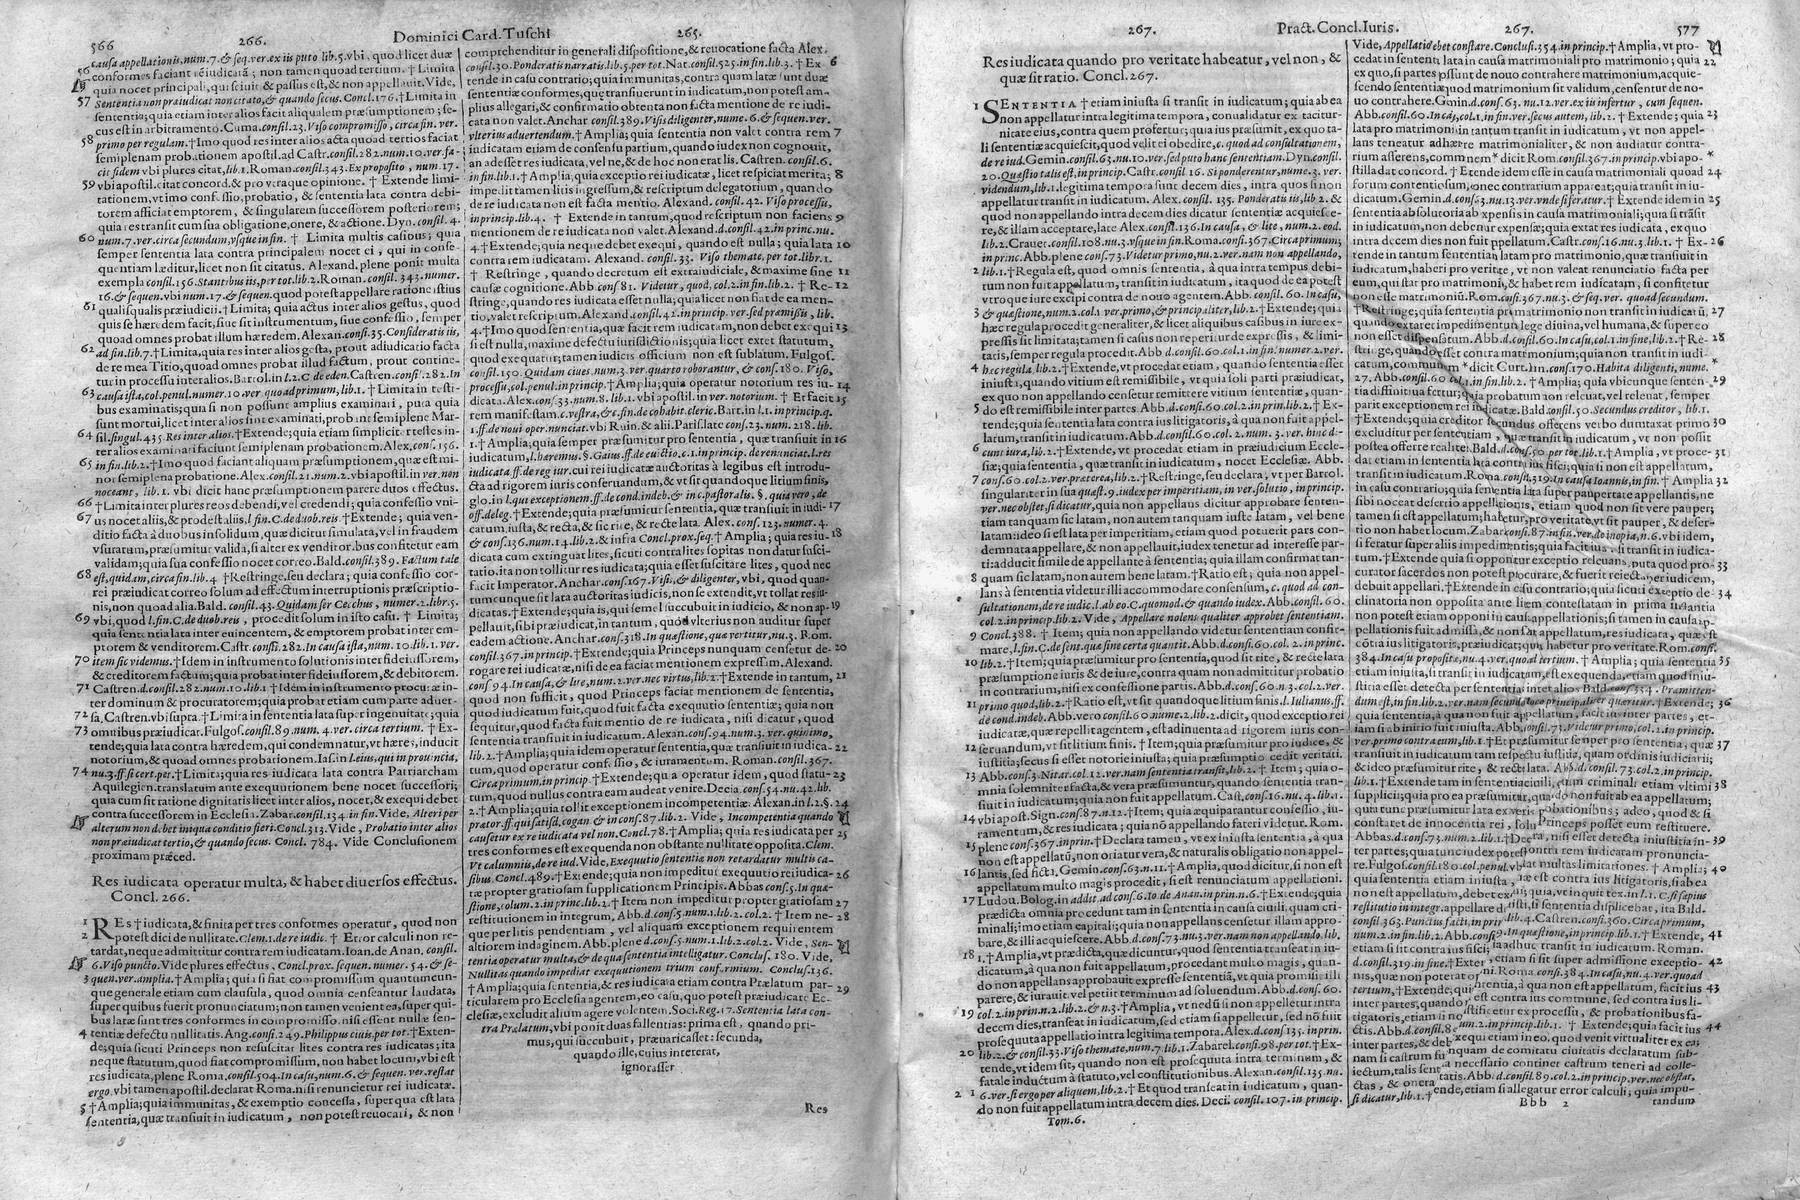 566
266.
Dominici Card. Tuschi
265.
causa appellationis, num. 7. & seq. ver. ex iis puto lib. 5. vbi, quod licet duæ
56 conformes faciant rē iudicatā; non tamen quoad tertium. † Limita
quia nocet principali, qui sciuit & passus est, & non appellauit. Vide,
57 Sententia non præiudicat non citato, & quando secus. Concl. 176. † Limita in
sententia; quia etiam inter alios facit aliqualem præsumptionem; se-
cus est in arbitramento. Cuma. consil. 23. Viso compromisso, circa fin. ver.
58 primo per regulam. † Imo quod res inter alios acta quoad tertios faciat
semiplenam probationem apostil. ad Castr. consil. 282. num. 10. ver. fa-
cit fidem vbi plures citat, lib. 1. Roman. consil. 343. Ex proposito, num. 17.
59 vbi apostil. citat concord. & pro vtraque opinione. † Extende limi-
tationem, vt imo confessio, probatio, & sententia lata contra debi-
torem afficiat emptorem, & singularem successorem posteriorem;
quia res transit cum sua obligatione, onere, & actione. Dyn. consil. 4.
60 num. 7. ver. circa secundum, vsque in fin. † Limita multis casibus; quia
semper sententia lata contra principalem nocet ei, qui in conse-
quentiam læditur, licet non sit citatus. Alexand. plene ponit multa
exempla consil. 156. Stantibus iis, per tot. lib. 2. Roman. consil. 343. numer.
16. & sequen. vbi num. 17. & sequen. quod potest appellare ratione istius
61 qualisqualis præiudicii. † Limita; quia actus inter alios gestus, quod
quis se hæredem facit, siue sit instrumentum, siue confessio, semper
quoad omnes probat illum hæredem. Alexan. consil. 35. Consideratis iis,
62 ad fin. lib. 7. † Limita, quia res inter alios gesta, prout adiudicatio facta
de re mea Titio, quoad omnes probat illud factum, prout contine-
tur in processu inter alios. Bartol. in l. 2. C. de eden. Castren. consil. 282. In
63 causa ista, col. penul. numer. 10. ver. quo ad primum, lib. 1. † Limita in testi-
bus examinatis; quia si non possunt amplius examinari, puta quia
sunt mortui, licet inter alios sint examinati, probant semiplene Mar-
64 sil. singul. 435. Res inter alios. † Extende; quia etiam simpliciter testes in-
ter alios examinati faciunt semiplenam probationem. Alex. cons. 156.
65 in fin. lib. 2. † Imo quod faciant aliquam præsumptionem, quæ est mi-
nor semiplena probatione. Alex. consil. 21. num. 2. vbi apostil. in ver. non
noceant, lib. 1. vbi dicit hanc præsumptionem parere duos effectus.
66 † Limita inter plures reos debendi, vel credendi; quia confessio vni-
67 us nocet aliis, & prodest aliis, l. fin. C. de duob. reis. † Extende; quia ven-
ditio facta à duobus in solidum, quæ dicitur simulata, vel in fraudem
vsurarum, præsumitur valida, si alter ex venditoribus confitetur eam
validam; quia sua confessio nocet correo. Bald. consil. 389. Factum tale
68 est, quidam, circa fin. lib. 4. † Restringe, seu declara; quia confessio cor-
rei præiudicat correo solum ad effectum interruptionis præscriptio-
nis, non quoad alia. Bald. consil. 43. Quidam ser Cecchus, numer. 2. libr. 5.
69 vbi, quod l. fin. C. de duob. reis, procedit solum in isto casu. † Limita;
quia sententia lata inter euincentem, & emptorem probat inter em-
ptorem & venditorem. Castr. consil. 282. In causa ista, num. 10. lib. 1. ver.
70 item sic videmus. † Idem in instrumento solutionis inter fideiussorem,
& creditorem factum; quia probat inter fideiussorem, & debitorem.
71 Castren. d. consil. 282. num. 10. lib. 1. † Idem in instrumento procuræ in-
ter dominum & procuratorem; quia probat etiam cum parte aduer-
72 sa, Castren. vbi supra. † Limita in sententia lata super ingenuitate; quia
73 omnibus præiudicat. Fulgos. consil. 89. num. 4. ver. circa tertium. † Ex-
tende; quia lata contra hæredem, qui condemnatur, vt hæres, inducit
notorium, & quoad omnes probationem. Ias. in l. eius, qui in prouincia,
74 nu. 3. ff. si cert. per. † Limita; quia res iudicata lata contra Patriarcham
Aquilegien. translatum ante exequutionem bene nocet successori;
quia cum sit ratione dignitatis licet inter alios, nocet, & exequi debet
contra successorem in Ecclesia. Zabar. consil. 134. in fin. Vide, Alteri per
alterum non debet iniqua conditio fieri. Concl. 313. Vide, Probatio inter alios
non præiudicat tertio, & quando secus. Concl. 784. Vide Conclusionem
proximam præced.
Res iudicata operatur multa, & habet diuersos effectus.
Concl. 266.
1 REs † iudicata, & finita per tres conformes operatur, quod non
2 potest dici de nullitate. Clem. 1. de re iudic. † Error calculi non re-
tardat, neque admittitur contra rem iudicatam. Ioan. de Anan. consil.
6. Viso puncto. Vide plures effectus, Concl. prox. sequen. numer. 54. & se-
3 quen. ver. amplia. † Amplia; quia si fiat compromissum quantumcun-
que generale etiam cum clausula, quod omnia censeantur laudata,
super quibus fuerit pronunciatum; non tamen venient ea, super qui-
bus latæ sunt tres conformes in compromisso, nisi essent nullæ sen-
4 tentiæ defectu nullitatis. Ang. consil. 249. Philippus ciuis, per tot. † Exten-
de; quia sicuti Princeps non resuscitat lites contra res iudicatas; ita
neque statutum, quod fiat compromissum, non habet locum, vbi est
res iudicata, plene Roma. consil. 504. In casu, num. 6. & sequen. ver. restat
ergo. vbi tamen apostil. declarat Roma. nisi renuncietur rei iudicatæ.
5 † Amplia; quia immunitas, & exemptio concessa, super qua est lata
sententia, quæ transiuit in iudicatum, non potest reuocari, & non
comprehenditur in generali dispositione, & reuocatione facta Alex.
consil. 30. Ponderatis narratis, lib. 5. per tot. Nat. consil. 525. in fin. lib. 3. † Ex- 6
tende in casu contrario; quia immunitas, contra quam latæ sunt duæ
sententiæ conformes, quæ transiuerunt in iudicatum, non potest am-
plius allegari, & confirmatio obtenta non facta mentione de re iudi-
cata non valet. Anchar. consil. 389. Visis diligenter, nume. 6. & sequen. ver.
vlterius aduertendum. † Amplia; quia sententia non valet contra rem 7
iudicatam etiam de consensu partium, quando iudex non cognouit,
an adesset res iudicata, vel ne, & de hoc non erat lis. Castren. consil. 6.
in fin. lib. 1. † Amplia; quia exceptio rei iudicatæ, licet respiciat merita; 8
impedit tamen litis ingressum, & rescriptum delegatorium, quando
de re iudicata non est facta mentio. Alexand. consil. 42. Viso processu,
in princip. lib. 4. † Extende in tantum, quod rescriptum non faciens 9
mentionem de re iudicata non valet. Alexand. d. consil. 42. in princ. nu.
4. † Extende; quia neque debet exequi, quando est nulla; quia lata 10
contra rem iudicatam. Alexand. consil. 33. Viso themate, per tot. libr. 1.
† Restringe, quando decretum est extraiudiciale, & maxime sine 11
causæ cognitione. Abb. cons. 81. Videtur, quod, col. 2. in fin. lib. 2. † Re- 12
stringe, quando res iudicata esset nulla; quia licet non fiat de ea men-
tio, valet rescriptum. Alexand. consil. 42. in princip. ver. sed præmissis, lib.
4. † Imo quod sententia, quæ facit rem iudicatam, non debet exequi 13
si est nulla, maxime defectu iurisdictionis; quia licet extet statutum,
quod exequatur; tamen iudicis officium non est sublatum. Fulgos.
consil. 150. Quidam ciues, num. 3. ver. quarto roborantur, & cons. 180. Viso,
processu, col. penul. in princip. † Amplia; quia operatur notorium res iu- 14
dicata. Alex. cons. 33. num. 8. lib. 1. vbi apostil. in ver. notorium. † Et facit 15
rem manifestam. c. vestra, & c. fin. de cohabit. cleric. Bart. in l. 1. in princip. q.
1. ff. de noui oper. nunciat. vbi Ruin. & alii. Paris. late cons. 23. num. 218. lib.
1. † Amplia; quia semper præsumitur pro sententia, quæ transiuit in 16
iudicatum, l. hæredium §. Gaius. ff. de euictio. c. 1. in princip. de renunciat. l. res
iudicata. ff. de reg. iur. cui rei iudicatæ auctoritas à legibus est introdu-
cta ad rigorem iuris conseruandum, & vt sit quandoque litium finis,
glo. in l. qui exceptionem. ff. de cond. indeb. & in c. pastoralis. §. quia vero, de
off. deleg. † Extende; quia præsumitur sententia, quæ transiuit in iudi- 17
catum, iusta, & recta, & sic rite, & recte lata. Alex. cons. 123. numer. 4.
& cons. 136. num. 14. lib. 2. & infra Concl. prox. seq. † Amplia; quia res iu- 18
dicata cum extinguat lites, sicuti contra lites sopitas non datur susci-
tatio, ita non tollitur res iudicata; quia esset suscitare lites, quod nec
facit Imperator. Anchar. cons. 167. Visis, & diligenter, vbi, quod quan-
tumcunque sit lata auctoritas iudicis, non se extendit, vt tollat res iu-
dicatas. † Extende; quia is, qui semel succubuit in iudicio, & non ap- 19
pellauit, sibi præiudicat, in tantum, quod vlterius non auditur super
eadem actione. Anchar. cons. 318. In quæstione, quæ vertitur, nu. 3. Rom.
consil. 367. in princip. † Extende; quia Princeps nunquam censetur de- 20
rogare rei iudicatæ, nisi de ea faciat mentionem expressim. Alexand.
cons. 94. In causa, & lite, num. 2. ver. nec virtus, lib. 2. † Extende in tantum, 21
quod non sufficit, quod Princeps faciat mentionem de sententia,
quod iudicatum fuit, quod fuit facta exequutio sententiæ; quia non
sequitur, quod facta fuit mentio de re iudicata, nisi dicatur, quod
sententia transiuit in iudicatum. Alexan. cons. 94. num. 3. ver. quinimo,
lib. 2. † Amplia; quia idem operatur sententia, quæ transiuit in iudica- 22
tum, quod operatur confessio, & iuramentum. Roman. consil. 367.
Circa primum, in princip. † Extende; quia operatur idem, quod statu- 23
tum, quod nullus contra eam audeat venire. Decia. cons. 54. num. 42. lib.
2. † Amplia; quia tollit exceptionem incompetentiæ. Alexan. in l. 2. §. 24
prætor. ff. qui satisd. cogan. & in cons. 87. lib. 2. Vide, Incompetentia quando
causetur ex re iudicata vel non. Concl. 78. † Amplia; quia res iudicata per 25
tres conformes est exequenda non obstante nullitate opposita. Clem.
Vt calumniis, de re iud. Vide, Exequutio sententiæ non retardatur multis ca-
sibus. Concl. 489. † Extende; quia non impeditur exequutio rei iudica- 26
tæ propter gratiosam supplicationem Principis. Abbas cons. 5. In quæ-
stione, colum. 2. in princ. lib. 2. † Item non impeditur propter gratiosam 27
restitutionem in integrum, Abb. d. cons. 5. num. 1. lib. 2. col. 2. † Item ne- 28
que per litis pendentiam, vel aliquam exceptionem requirentem
altiorem indaginem. Abb. plene d. cons. 5. num. 1. lib. 2. col. 2. Vide, Sen-
tentia operatur multa, & de qua sententia intelligatur. Conclus. 180. Vide,
Nullitas quando impediat exequutionem trium conformium. Conclus. 136.
† Amplia; quia sententia, & res iudicata etiam contra Prælatum par- 29
ticularem pro Ecclesia agentem, eo casu, quo potest præiudicare Ec-
clesiæ, excludit alium agere volentem. Soci. Reg. 17. Sententia lata con-
tra Prælatum, vbi ponit duas fallentias: prima est, quando pri-
mus, qui succubuit, præuaricasset: secunda,
quando ille, cuius intererat,
ignorasset
Res
267.
Pract. Concl. Iuris.
267.
577
Res iudicata quando pro veritate habeatur, vel non, &
quæ sit ratio. Concl. 267.
1 SENTENTIA † etiam iniusta si transit in iudicatum; quia ab ea
non appellatur intra legitima tempora, conualidatur ex tacitur-
nitate eius, contra quem profertur; quia ius præsumit, ex quo ta-
li sententiæ acquiescit, quod velit ei obedire, c. quod ad consultationem,
de re iud. Gemin. consil. 63. nu. 10. ver. sed puto hanc sententiam. Dyn. consil.
20. Quæstio talis est, in princip. Castr. consil. 16. Si ponderentur, nume. 3. ver.
videndum, lib. 1. legitima tempora sunt decem dies, intra quos si non
appellatur transit in iudicatum. Alex. consil. 135. Ponderatis iis, lib. 2. &
quod non appellando intra decem dies dicatur sententiæ acquiesce-
re, & illam acceptare, late Alex. cons. 136. In causa, & lite, num. 2. eod.
lib. 2. Crauet. consil. 108. nu. 3. vsque in fin. Roma. consil. 367. Circa primum;
in princ. Abb. plene cons. 73. Videtur primo, nu. 2. ver. nam non appellando,
2 lib. 1. † Regula est, quod omnis sententia, à qua intra tempus debi-
tum non fuit appellatum, transit in iudicatum, ita quod de ea potest
vtroque iure excipi contra de nouo agentem. Abb. consil. 60. In casu,
3 & quæstione, num. 2. col. 1. ver. primo, & principaliter, lib. 2. † Extende; quia
hæc regula procedit generaliter, & licet aliquibus casibus in iure ex-
pressis sit limitata; tamen si casus non reperitur expressis, & limi-
tatis, semper regula procedit. Abb. d. consil. 60. col. 1. in fin. numer. 2. ver.
4 hæc regula, lib. 2. † Extende, vt procedat etiam, quando sententia esset
iniusta, quando vitium est remissibile, vt quia soli parti præiudicat,
ex quo non appellando censetur remittere vitium sententiæ, quan-
5 do est remissibile inter partes. Abb. d. cons. 60. col. 2. in prin. lib. 2. † Ex-
tende; quia sicuti lata est contra ius litigatoris, à qua non fuit appel-
latum, transit in iudicatum. Abb. d. cons. 60. col. 2. num. 3. ver. hinc di-
6 cunt iura, lib. 2. † Extende, vt procedat etiam in præiudicium Eccle-
siæ; quia sententia, quæ transit in iudicatum, nocet Ecclesiæ. Abb.
7 cons. 60. col. 2. ver. præterea, lib. 2. † Restringe, seu declara, vt per Bartol.
singulariter in sua quæst. 9. iudex per imperitiam, in ver. solutio, in princip.
ver. nec obstet, si dicatur, quia non appellans dicitur approbare senten-
tiam tanquam sic latam, non autem tanquam iuste latam, vel bene
latam: ideo si est lata per imperitiam, etiam quod potuerit pars con-
demnata appellare, & non appellauit, iudex tenetur ad interesse par-
ti: adducit simile de appellante à sententia; quia illam confirmat tan-
8 quam sic latam, non autem bene latam. † Ratio est; quia non appel-
lans à sententia videtur illi accommodare consensum, c. quod ad con-
sultationem, de re iudic. l. ab eo C. quomod. & quando iudex. Abb. cons. 60.
col. 2. in princip. lib. 2. Vide, Appellare nolens qualiter approbet sententiam.
9 Concl. 388. † Item; quia non appellando videtur sententiam confir-
mare, l. fin. C. de sent. quæ sine certa quantit. Abb. d. cons. 60. col. 2. princ.
10 lib. 2. † Item; quia præsumitur pro sententia, quod sit rite, & recte lata
præsumptione iuris & de iure, contra quam non admittitur probatio
in contrarium, nisi ex confessione partis. Abb. d. cons. 60. n. 3. col. 2. ver.
11 primo quod, lib. 2. † Ratio est, vt sit quandoque litium finis. l. Iulianus. ff.
de cond. indeb. Abb. vero cons. 60. nume. 2. lib. 2. dicit, quod exceptio rei
iudicatæ, quæ repellit agentem, est adinuenta ad rigorem iuris con-
12 seruandum, vt sit litium finis. † Item; quia præsumitur pro iudice, &
iustitia; secus si esset notorie iniusta; quia præsumptio cedit veritati.
13 Abb. cons. 3. Nitar. col. 12. ver. nam sententia transit, lib. 2. † Item; quia o-
mnia solemniter facta, & vera præsumuntur, quando sententia tran-
siuit in iudicatum; quia non fuit appellatum. Cast. cons. 16. nu. 4. lib. 1.
14 vbi apost. Sign. cons. 87. n. 12. † Item; quia æquiparantur confessio, iu-
ramentum, & res iudicata; quia nō appellando fateri videtur. Rom.
15 plene cons. 367. in prin. † Declara tamen, vt ex iniusta sententia, à qua
non est appellatū, non oriatur vera, & naturalis obligatio non appel-
16 lantis, sed ficta, Gemin. cons. 63. n. 11. † Amplia, quod dicitur, si non est
appellatum multo magis procedit, si est renunciatum appellationi.
17 Ludou. Bolog. in addit. ad cons. 6. Io. de Anan. in prin. n. 6. † Extende; quia
prædicta omnia procedunt tam in sententia in causa ciuili, quam cri-
minali; imo etiam capitali; quia non appellans censetur illam appro-
bare, & illi acquiescere. Abb. d. cons. 73. nu. 3. ver. nam non appellando, lib.
18 1. † Amplia, vt prædicta, quæ dicuntur, quod sententia transeat in iu-
dicatum, à qua non fuit appellatum, procedant multo magis, quan-
do non appellans approbauit expresse sententiā, vt quia promisit illi
parere, & iurauit, vel petiit terminum ad soluendum. Abb. d. cons. 60.
19 col. 2. in prin. n. 2. lib. 2. & n. 3. † Amplia, vt nedū si non appelletur intra
decem dies, transeat in iudicatum, sed etiam si appelletur, sed nō fuit
prosequuta appellatio intra legitima tempora. Alex. d. cons. 135. in prin.
20 lib. 2. & consil. 33. Viso themate, num. 7. lib. 1. Zabarel. cons. 98. per tot. † Ex-
tende, vt idem sit, quando non est prosequuta intra terminum, &
fatale inductum à statuto, vel constitutionibus. Alexan. consil. 135. nu.
21 6. ver. si ergo per aliquem, lib. 2. † Et quod transeat in iudicatum, quan-
do non fuit appellatum intra decem dies. Deci. consil. 107. in princip.
Tom. 6.
Vide, Appellatio debet constare. Conclusi. 354. in princip. † Amplia, vt pro-
cedat in sententia lata in causa matrimoniali pro matrimonio; quia 22
ex quo, si partes possunt de nouo contrahere matrimonium, acquie-
scendo sententiæ quod matrimonium sit validum, censentur de no-
uo contrahere. Gemin. d. cons. 63. nu. 12. ver. ex iis infertur, cum sequen.
Abb. cons. 60. In casu, col. 1. in fin. ver. secus autem, lib. 2. † Extende; quia 23
lata pro matrimonio in tantum transit in iudicatum, vt non appel-
lans teneatur adhærere matrimonialiter, & non audiatur contra-
rium asserens, commnem * dicit Rom. consil. 367. in princip. vbi apo- *
stilla dat concord. † Extende idem esse in causa matrimoniali quoad 24
forum contentiosum, donec contrarium appareat; quia transit in iu-
dicatum. Gemin. d. cons. 63. nu. 13. ver. vnde si feratur. † Extende idem in 25
sententia absolutoria ab expensis in causa matrimoniali; quia si trāsit
in iudicatum, non debentur expensæ; quia extat res iudicata, ex quo
intra decem dies non fuit appellatum. Castr. cons. 16. nu. 3. lib. 1. † Ex- 26
tende in tantum vt sententia lata pro matrimonio, quæ transiuit in
iudicatum, haberi pro veritate, vt non valeat renunciatio facta per
eum, qui stat pro matrimonio, & habet rem iudicatam, si confitetur
non esse matrimoniū. Rom. cons. 367. nu. 3. & seq. ver. quoad secundum.
† Restringe; quia sententia pro matrimonio non transit in iudicatū, 27
quando extaret impedimentum lege diuina, vel humana, & super eo
non esset dispensatum. Abb. d. consil. 60. In casu, col. 1. in fine, lib. 2. † Re- 28
stringe, quando esset contra matrimonium; quia non transit in iudi-
catum, communem * dicit Curt. Iun. cons. 170. Habita diligenti, nume. *
27. Abb. consil. 60. col. 1. in fin. lib. 2. † Amplia; quia vbicunque senten- 29
tia diffinitiua fertur; quia probationem releuat, vel releuat, semper
parit exceptionem rei iudicatæ. Bald. consil. 50. Secundus creditor, lib. 1.
† Extende; quia creditor secundus offerens verbo duntaxat primo 30
excluditur per sententiam, quæ transit in iudicatum, vt non possit
postea offerre realiter. Bald. d. cons. 50. per tot. lib. 1. † Amplia, vt proce- 31
dat etiam in sententia lata contra ius fisci; quia si non est appellatum,
transit in iudicatum. Roma. consil. 319. In causa Ioannis, in fin. † Amplia 32
in casu contrario; quia sententia lata super paupertate appellantis, ne
sibi noceat desertio appellationis, etiam quod non sit vere pauper;
tamen si est appellatum; habetur pro veritate, vt sit pauper, & deser-
tio non habet locum. Zabar. consil. 87. in fin. ver. de inopia, n. 6. vbi idem,
si feratur super aliis impedimentis; quia facit ius & transit in iudica-
tum. † Extende quia si opponitur exceptio releuans, puta quod pro- 33
curator sacerdos non potest procurare, & fuerit reiecta per iudicem,
debuit appellari. † Extende in casu contrario; quia sicuti exceptio de- 34
clinatoria non opposita ante litem contestatam in prima instantia
non potest etiam opponi in causa appellationis; si tamen in causa ap-
pellationis fuit admissa, & non sit appellatum, res iudicata, quæ est
cōtra ius litigatoris; præiudicat; quia habetur pro veritate. Rom. consil.
384. In casu proposito, nu. 4. ver. quoad tertium. † Amplia; quia sententia 35
etiam iniusta, si transit in iudicatum; est exequenda, etiam quod iniu-
stitia esset detecta per sententiā inter alios Bald. cons. 354. Præmitten-
dum est, in fin. lib. 2. ver. nam secundo loco principaliter quæritur. † Extende; 36
quia sententia, à qua non fuit appellatum, facit ius inter partes, et-
iam si ab initio fuit iniusta. Abb. cons. 73. Videtur primo, col. 2. in princip.
ver. primo contra eum, lib. 1. † Et præsumitur semper pro sententia, quæ 37
transiuit in iudicatum tam respectu iustitiæ, quam ordinis iudiciarii;
& ideo præsumitur rite, & recte lata. Abb. d. consil. 73. col. 2. in princip.
lib. 1. † Extende tam in sententia ciuili, quam criminali etiam vltimi 38
supplicii; quia pro ea præsumitur, quando non fuit ab ea appellatum;
quia tunc præsumitur lata ex veris probationibus; adeo, quod si
constaret de innocentia rei, solus Princeps posset eum restituere.
Abbas. d. cons. 73. num. 2. lib. 1. † Declara, nisi esset detecta iniustitia in- 39
ter partes; quia tunc iudex potest contra rem iudicatam pronuncia-
re. Fulgos. consil. 180. col. penul. vbi dat multas limitationes. † Amplia; 40
quia sententia etiam iniusta, quæ est contra ius litigatoris, si ab ea
non est appellatum, debet exequi, quia, vt inquit tex. in l. 1. C. si sæpius
restitutio in integr. appellare debet, si sententia displicebat, ita Bald.
consil. 363. Punctus facti, in princip. lib. 4. Castren. consil. 360. Circa primum,
num. 40. in princip. lib. 2. Abb. consil. 9. In quæstione, in princip. lib. 1. † Extende, 41
etiam si sit contra ius fisci; quia adhuc transit in iudicatum. Roman.
d. consil. 319. in fine. † Extende, etiam si sit super admissione exceptio- 42
nis, quæ non poterat opponi. Roma. consil. 384. In casu, nu. 4. ver. quoad
tertium, † Extende, quia sententia, à qua non est appellatum, facit ius 43
inter partes, quando est contra ius commune, sed contra ius li-
tigatoris, etiam si non sit iustificetur ex processu, & probationibus fa-
ctis. Abb. d. consil. 80. num. 2. in princip. lib. 1. † Extende; quia facit ius 44
inter partes, & debet exequi etiam in eo, quod venit virtualiter ex ea;
nam si castrum sit nunquam de comitatu ciuitatis declaratum sub-
iectum, talis sententia necessario continet castrum teneri ad colle-
ctas, & onera imperata. Abb. d. consil. 89. col. 2. in princip. ver. nec obstat,
si dicatur, lib. 1. † Extende, etiam si allegatur error calculi; quia impu-
Bbb 2
tandum